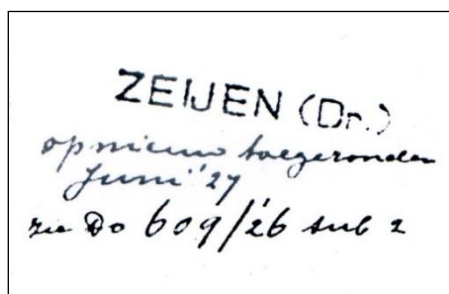 ZEIJEN (Dr.)
opnieuw toegezonden
Juni '27
zie Do 609/'26 sub 2